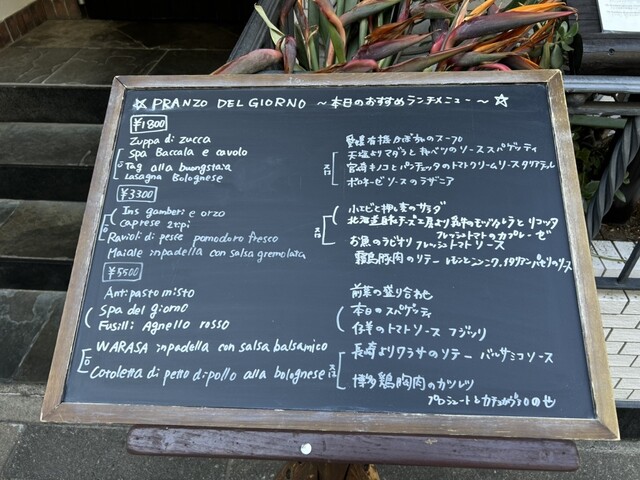 ☆ PRANZO DEL GIORNO ～本日のおすすめランチメニュー～ ☆
¥1800
Zuppa di zucca
愛媛有機かぼちゃのスープ
Spa Baccala e cavolo
天塩よりマダラと キャベツのソース スパゲッティ
Tag alla buongstaia
宮崎キノコとパンチェッタのトマトクリームソース タリアテッレ
Lasagna Bolognese
ボロネーゼソースのラザニア
¥3300
Ins gamberi e orzo
小エビと押し麦のサラダ
Caprese 2tipi
北海道 チーズ工房より のモッツァレラと リコッタ
フレッシュトマトのカプレーゼ
Ravioli di pesce pomodoro fresco
お魚のラビオリ フレッシュトマトソース
Maiale inpadella con salsa gremolata
霧島豚肉のソテー レモンとニンニク、イタリアンパセリのソース
¥5500
Antipasto misto
前菜の盛り合わせ
Spa del giorno
本日のスパゲッティ
Fusilli Agnello rosso
仔羊のトマトソース フジッリ
WARASA inpadella con salsa balsamico
長崎よりワラサのソテー バルサミコソース
Cotoletta di petto di pollo alla bolognese
博多鶏胸肉のカツレツ
プロシュートと の